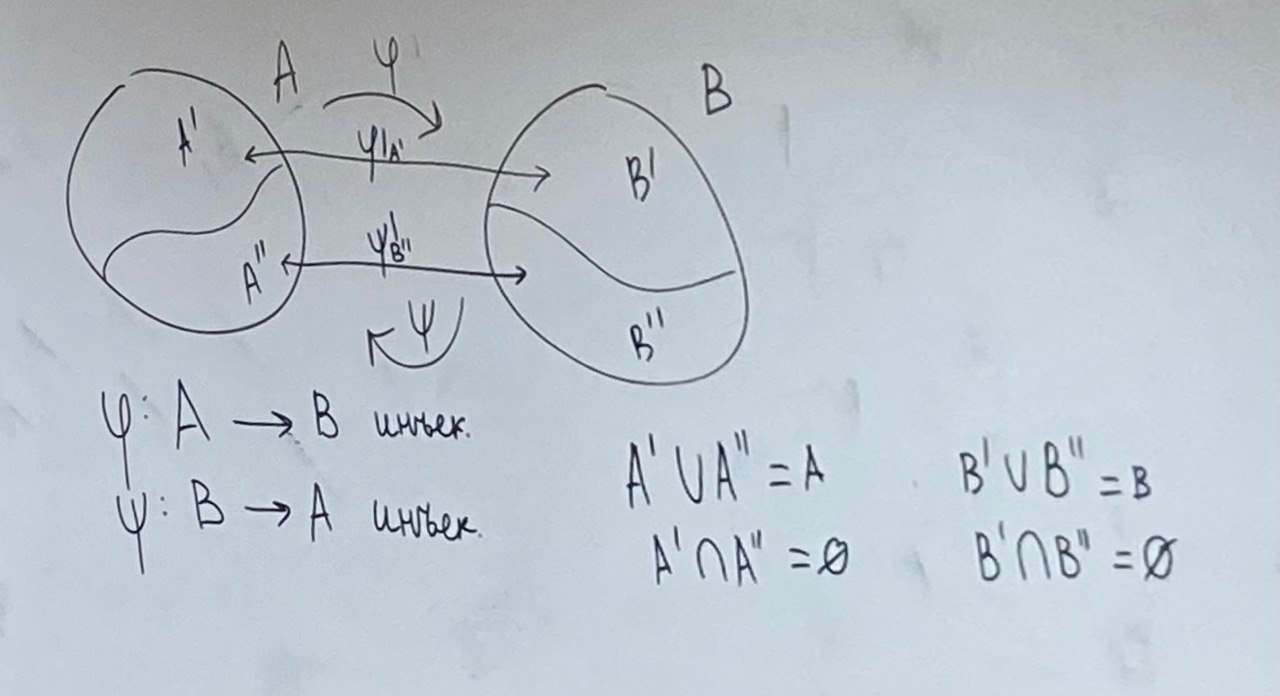 A φ B
A' φ|A' B'
A'' ψ|B'' B''
ψ
φ: A → B инъек.
ψ: B → A инъек.
A' ∪ A'' = A B' ∪ B'' = B
A' ∩ A'' = ∅ B' ∩ B'' = ∅